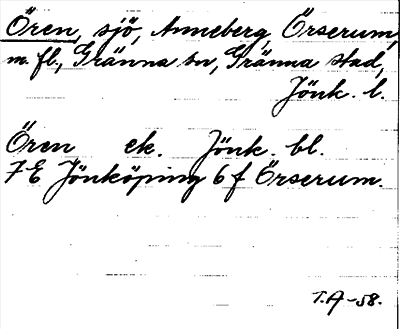 Ören, sjö, Anneberg, Örserum,
m. fl., Gränna sn, Gränna stad,
Jönk. l.
Ören ek. Jönk. bl.
7E Jönköping 6f Örserum.
T.A-58.